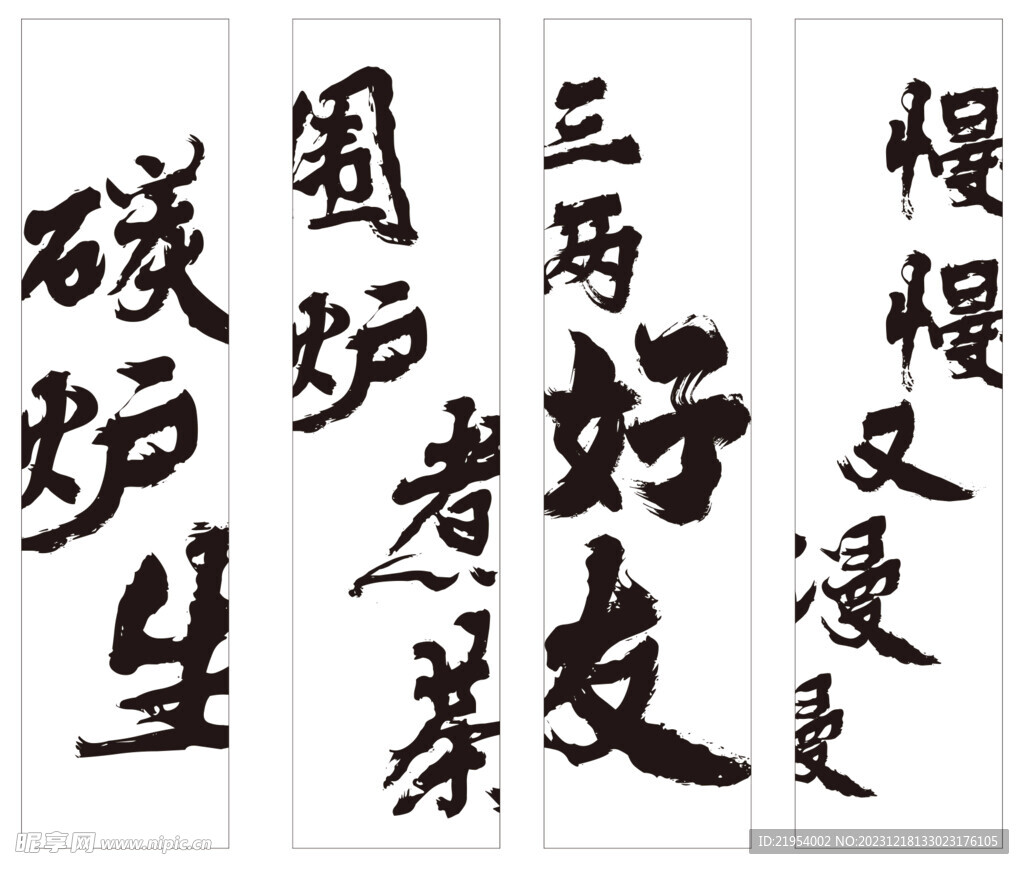 碳炉生
围炉煮茶
三两好友
慢慢又漫漫
昵享网 www.nipic.cn
ID:21954002 NO:20231218133023176105